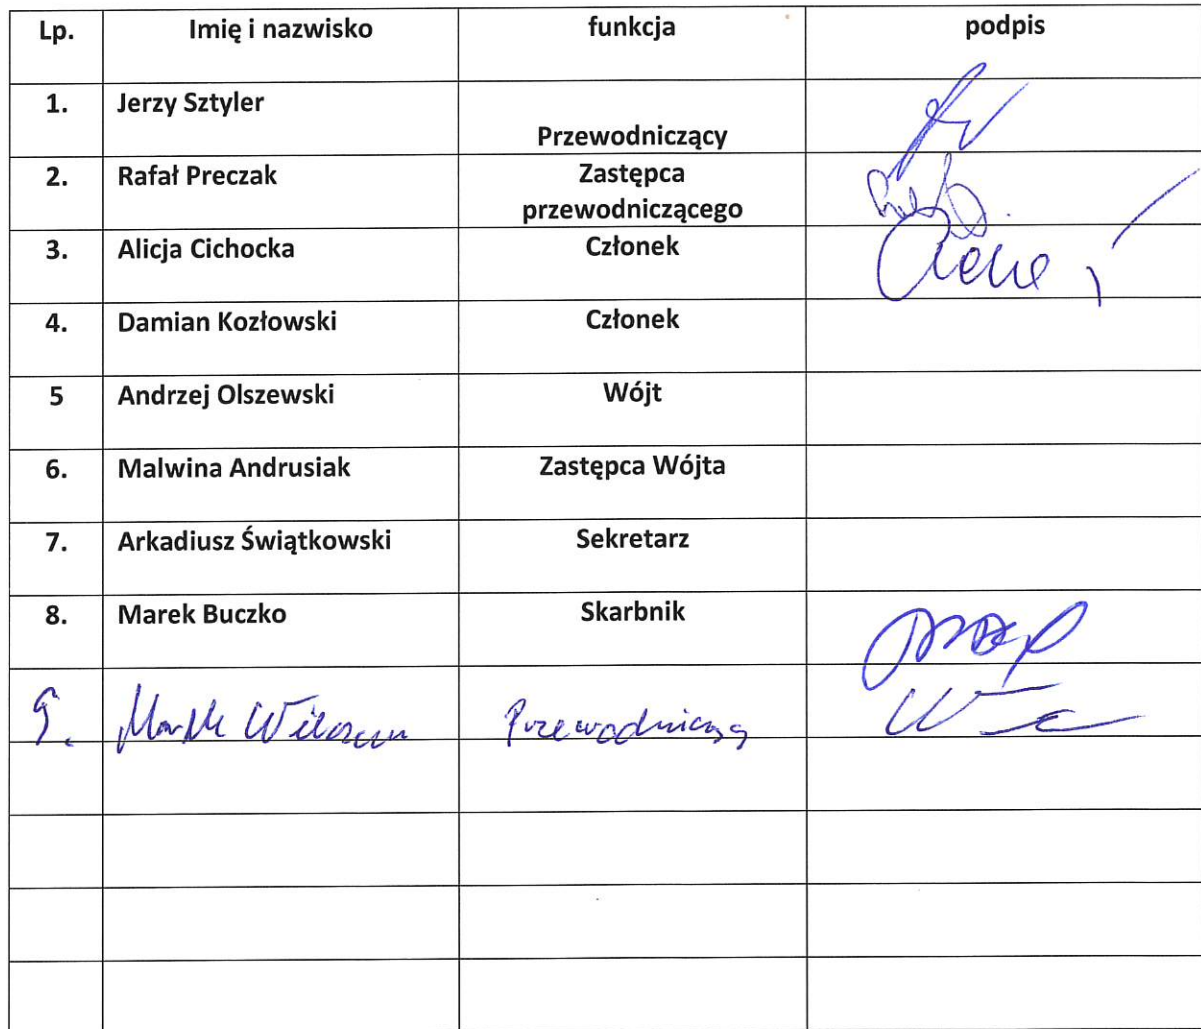 Lp. Imię i nazwisko funkcja podpis
1. Jerzy Sztyler Przewodniczący
2. Rafał Preczak Zastępca
przewodniczącego
3. Alicja Cichocka Członek
4. Damian Kozłowski Członek
5 Andrzej Olszewski Wójt
6. Malwina Andrusiak Zastępca Wójta
7. Arkadiusz Świątkowski Sekretarz
8. Marek Buczko Skarbnik
9. Przewodniczący